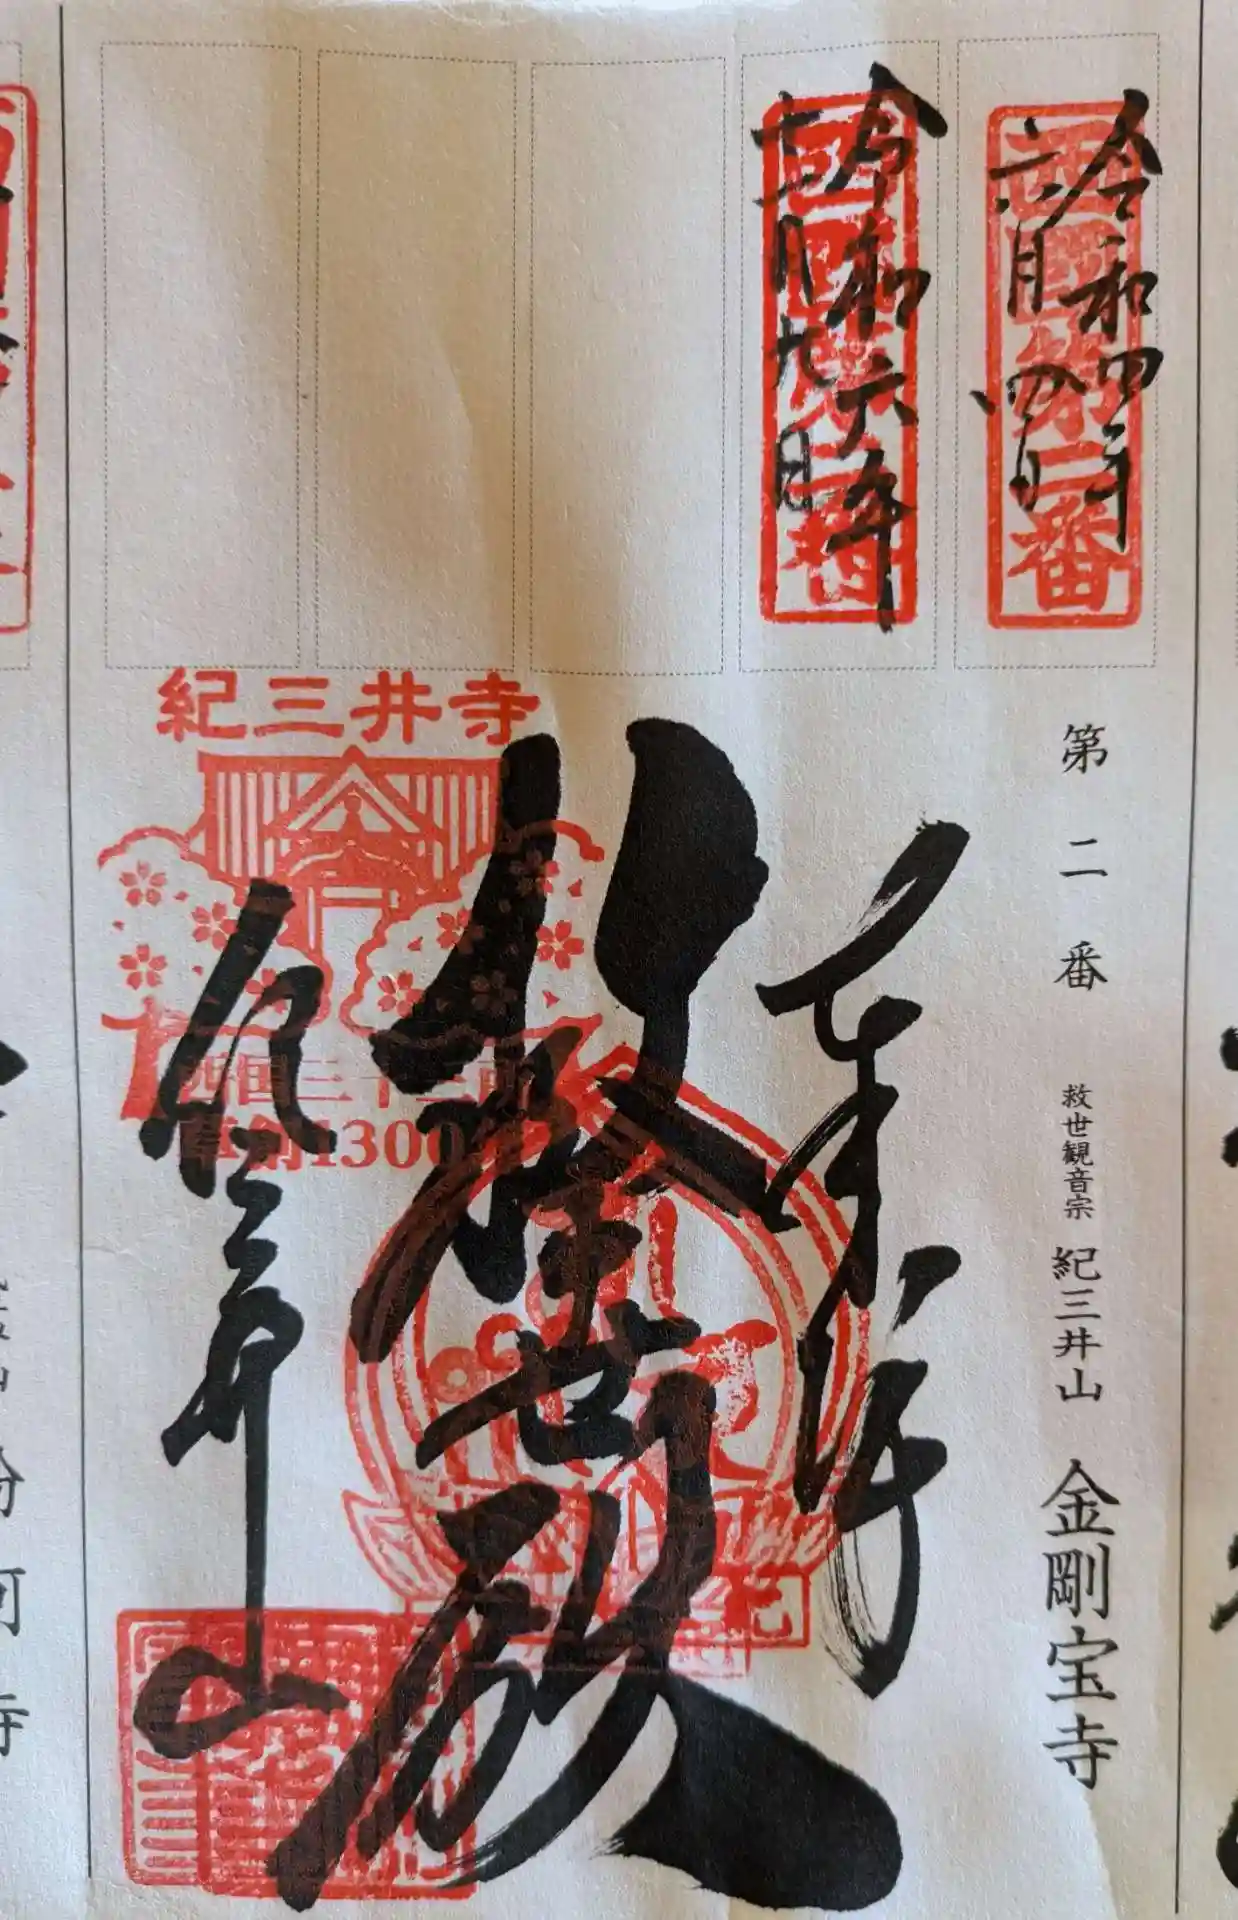 令和四年
六月四日
西国第二番
令和六年
十二月九日
西国第二番
第二番 救世観音宗 紀三井山 金剛宝寺
奉拝
救世殿
紀三井山
紀三井寺
西国三十三所
草創1300年